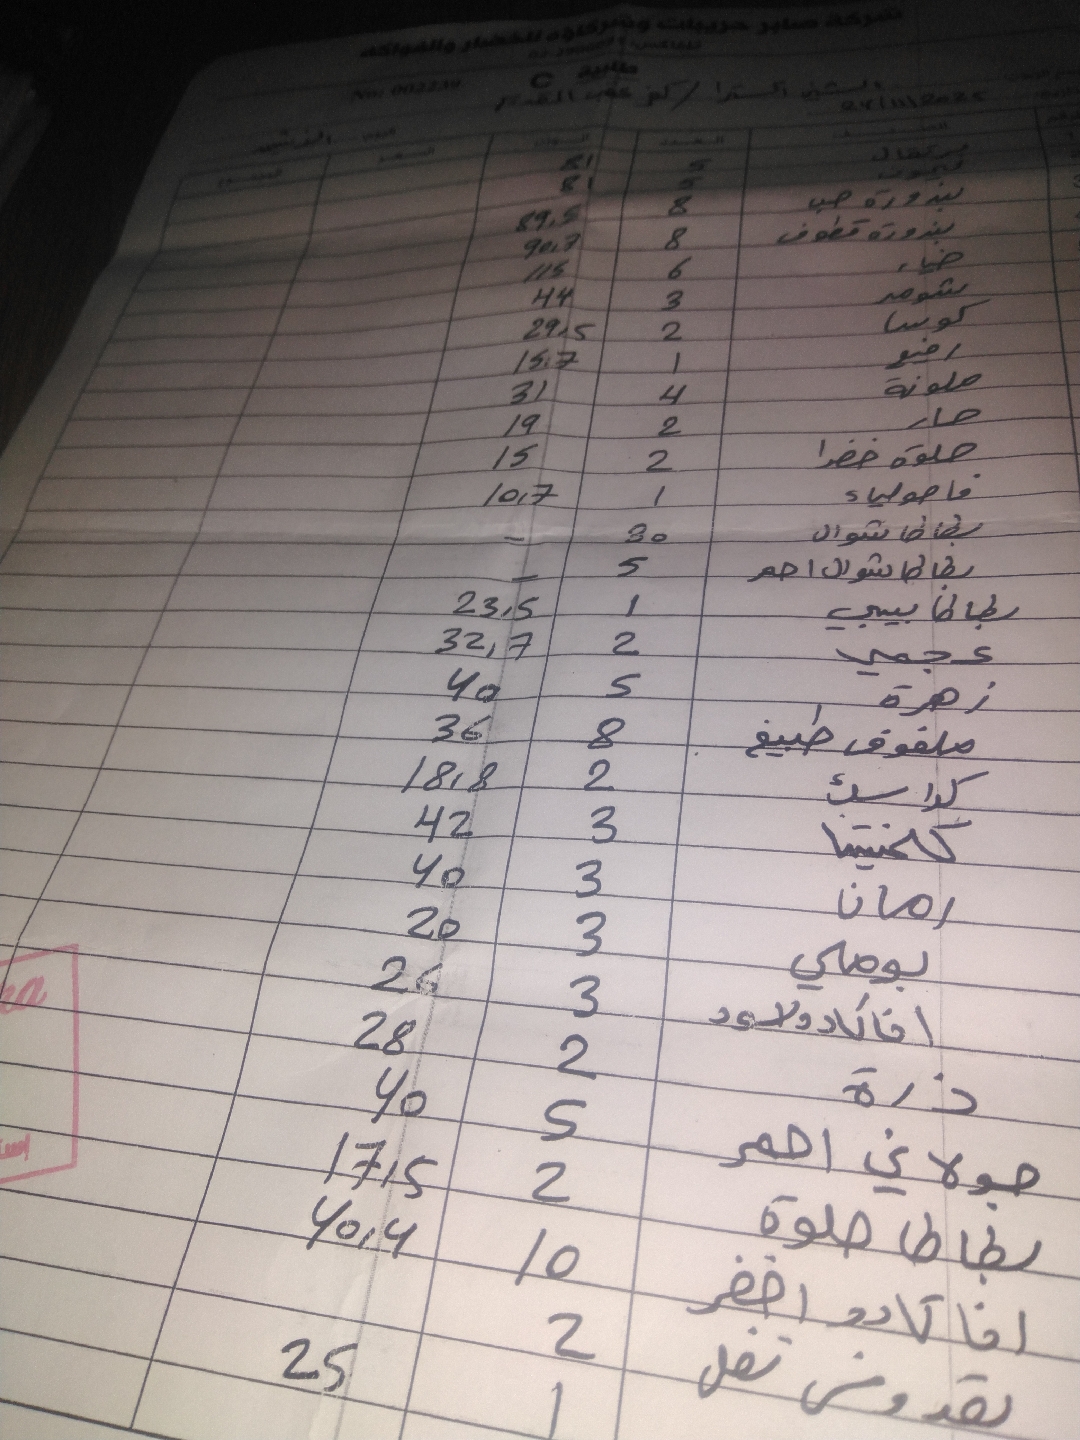 شركة صابر حريبات وشركاؤه للخضار والفواكه
طلبية C
No: 002239
الصنف العدد الوزن السعر
برتقال 5 81
ليمون 5 81
بندورة حب 8 89,5
بندورة قطوف 8 90,7
خيار 6 115
شومر 3 44
كوسا 2 29,5
رفيع 1 15,7
ملونة 4 31
حار 2 19
حلوة خضرا 2 15
فاصولياء 1 10,7
بطاطا شوال 30 -
بطاطا شوال احمر 5 -
بطاطا بيبي 1 23,5
عجمي 2 32,7
زهرة 5 40
ملفوف طبيخ 8 36
2 18,8
كلمنتينا 3 42
رمان 3 40
بوملي 3 20
افاكادو لاود 3 26
ذرة 2 28
جولاني احمر 5 40
بطاطا حلوة 2 17,5
افاكادو اخضر 10 40,4
2
بقدونس نفل 1 25